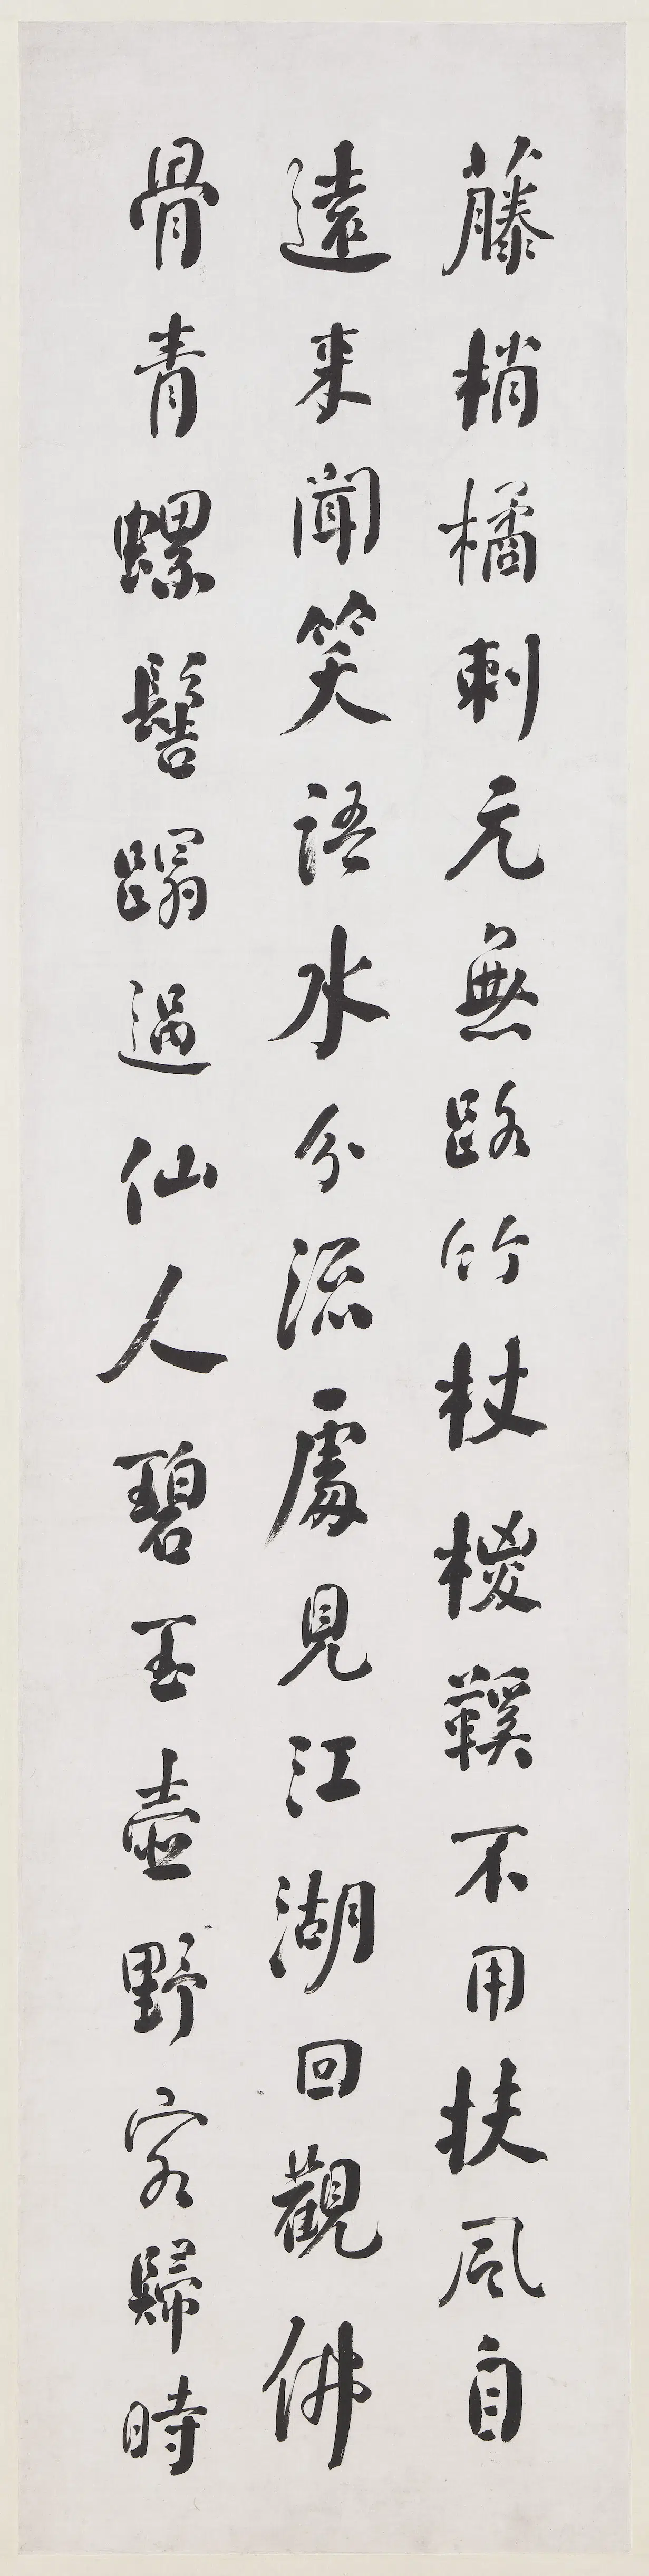 藤梢橘刺元無路竹杖椶鞵不用扶風自
遠來聞笑語水分流處見江湖回觀佛
骨青螺髻蹋過仙人碧玉壺野客歸時